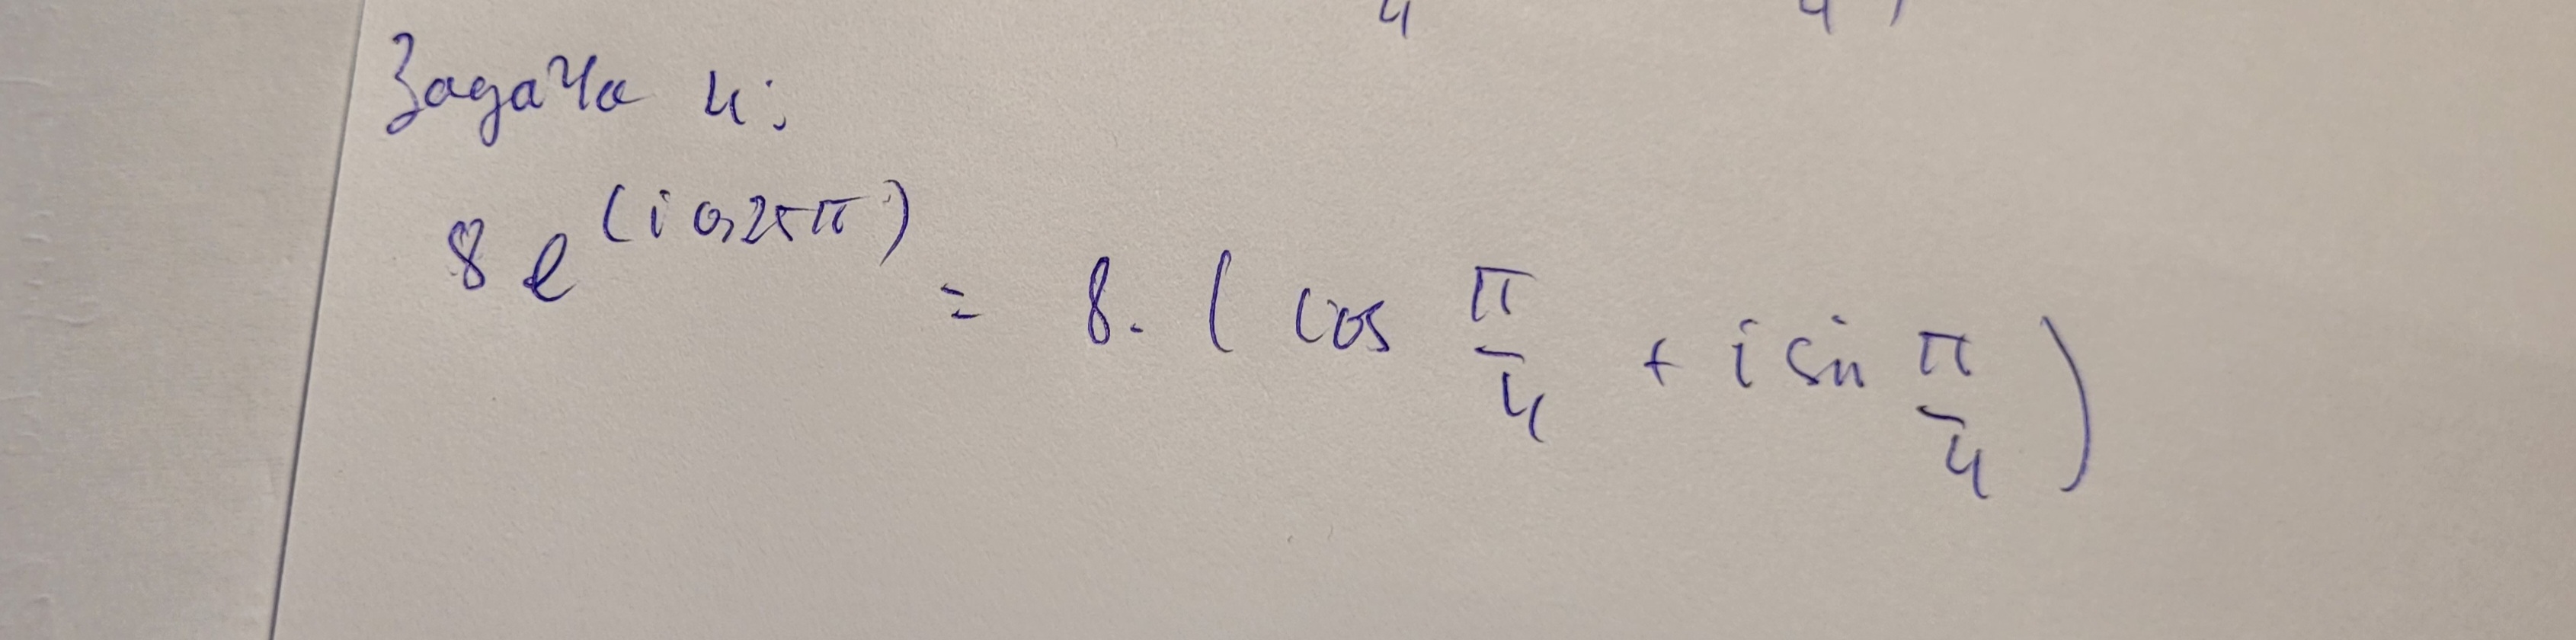 4 4 )
Задача 4:
8 e^(i 0,25π) = 8. ( cos π/4 + i sin π/4 )